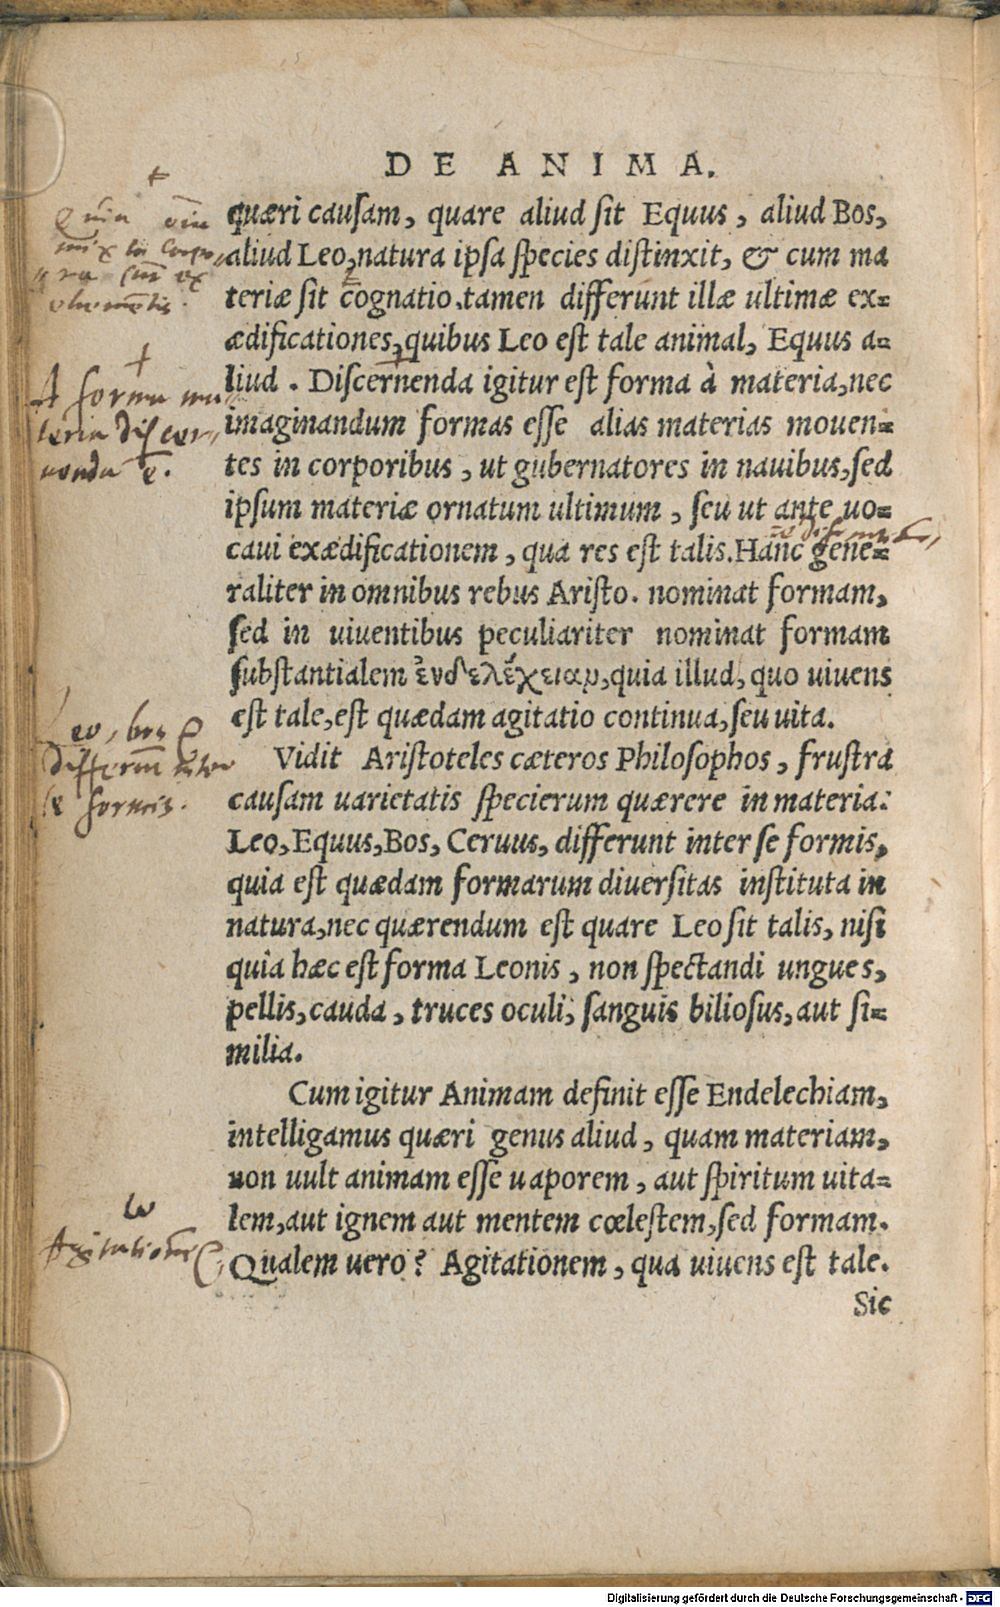 DE ANIMA.
quæri causam, quare aliud sit Equus, aliud Bos,
aliud Leo, natura ipsa species distinxit, & cum ma
teriæ sit cognatio, tamen differunt illæ ultimæ ex=
ædificationes, quibus Leo est tale animal, Equus a=
liud. Discernenda igitur est forma à materia, nec
imaginandum formas esse alias materias mouen=
tes in corporibus, ut gubernatores in nauibus, sed
ipsum materiæ ornatum ultimum, seu ut ante uo=
caui exædificationem, qua res est talis. Hanc gene=
raliter in omnibus rebus Aristo. nominat formam,
sed in uiuentibus peculiariter nominat formam
substantialem ἐνδελέχειαν, quia illud, quo uiuens
est tale, est quædam agitatio continua, seu uita.
Vidit Aristoteles cæteros Philosophos, frustra
causam uarietatis specierum quærere in materia:
Leo, Equus, Bos, Ceruus, differunt inter se formis,
quia est quædam formarum diuersitas instituta in
natura, nec quærendum est quare Leo sit talis, nisi
quia hæc est forma Leonis, non spectandi ungues,
pellis, cauda, truces oculi, sanguis biliosus, aut si=
milia.
Cum igitur Animam definit esse Endelechiam,
intelligamus quæri genus aliud, quam materiam,
non uult animam esse uaporem, aut spiritum uita=
lem, aut ignem aut mentem cœlestem, sed formam.
Qualem uero? Agitationem, qua uiuens est tale.
Sic
+
mixta corpo
ra sūt ex
elemētis.
+
A forma ma
teria discer
nenda ē.
Leo, bos
differūt inter
se formis.
Agitationē
Digitalisierung gefördert durch die Deutsche Forschungsgemeinschaft - DFG